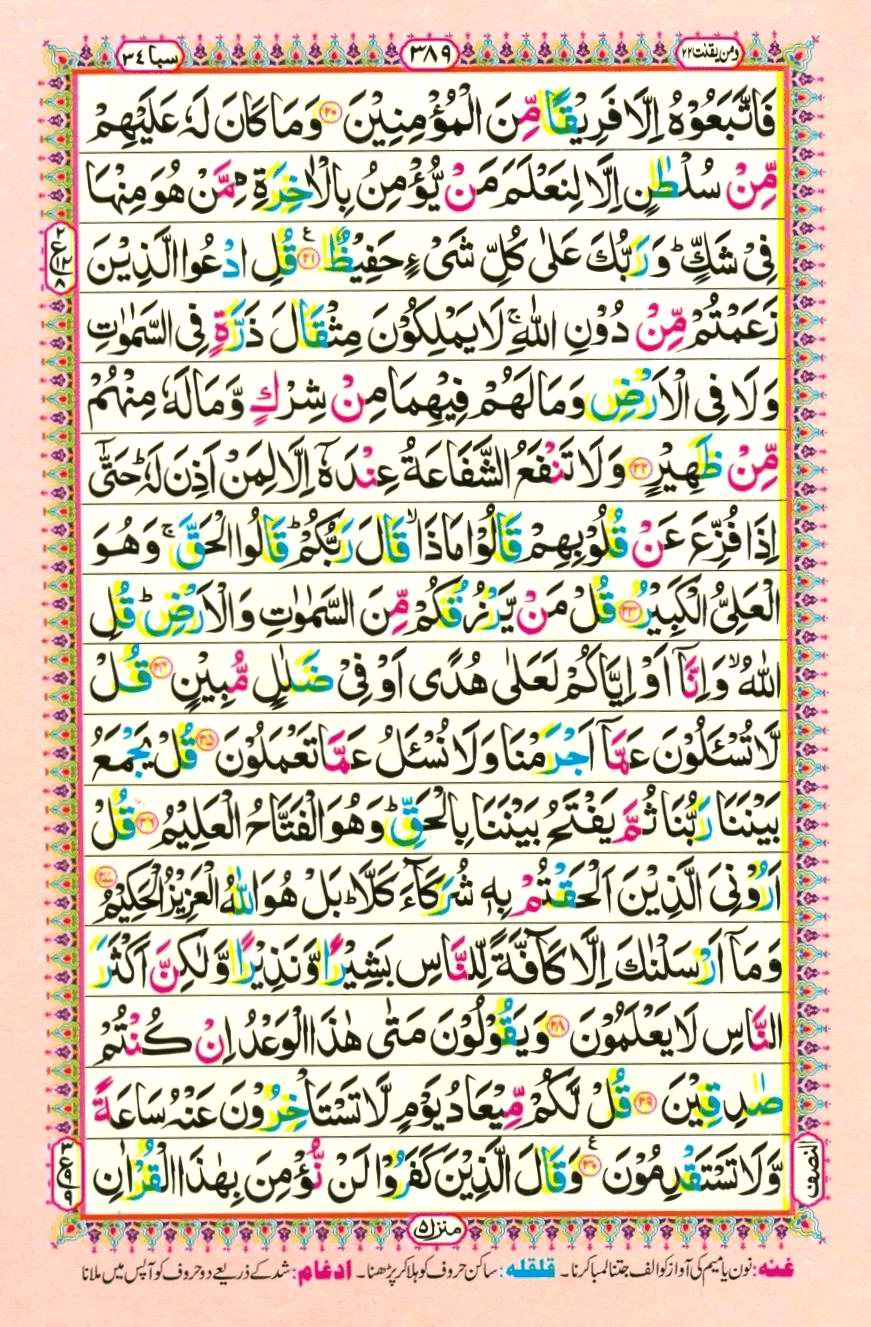 ومن یقنت ۲۲
۳۸۹
سبا ۳٤
فَاتَّبَعُوْهُ اِلَّا فَرِیْقًا مِّنَ الْمُؤْمِنِیْنَ ۝۲۰ وَمَا كَانَ لَهٗ عَلَیْهِمْ
مِّنْ سُلْطٰنٍ اِلَّا لِنَعْلَمَ مَنْ یُّؤْمِنُ بِالْاٰخِرَةِ مِمَّنْ هُوَ مِنْهَا
فِیْ شَكٍّ ؕ وَرَبُّكَ عَلٰی كُلِّ شَیْءٍ حَفِیْظٌ ۝۲۱ ع قُلِ ادْعُوا الَّذِیْنَ
۲
ع
۱۲
۸
زَعَمْتُمْ مِّنْ دُوْنِ اللّٰهِ ۚ لَا یَمْلِكُوْنَ مِثْقَالَ ذَرَّةٍ فِی السَّمٰوٰتِ
وَلَا فِی الْاَرْضِ وَمَا لَهُمْ فِیْهِمَا مِنْ شِرْكٍ وَّمَا لَهٗ مِنْهُمْ
مِّنْ ظَهِیْرٍ ۝۲۲ وَلَا تَنْفَعُ الشَّفَاعَةُ عِنْدَهٗۤ اِلَّا لِمَنْ اَذِنَ لَهٗ ؕ حَتّٰۤی
اِذَا فُزِّعَ عَنْ قُلُوْبِهِمْ قَالُوْا مَاذَا ۙ قَالَ رَبُّكُمْ ؕ قَالُوا الْحَقَّ ۚ وَهُوَ
الْعَلِیُّ الْكَبِیْرُ ۝۲۳ قُلْ مَنْ یَّرْزُقُكُمْ مِّنَ السَّمٰوٰتِ وَالْاَرْضِ ؕ قُلِ
اللّٰهُ ۙ وَاِنَّاۤ اَوْ اِیَّاكُمْ لَعَلٰی هُدًی اَوْ فِیْ ضَلٰلٍ مُّبِیْنٍ ۝۲۴ قُلْ
لَّا تُسْـَٔلُوْنَ عَمَّاۤ اَجْرَمْنَا وَلَا نُسْـَٔلُ عَمَّا تَعْمَلُوْنَ ۝۲۵ قُلْ یَجْمَعُ
بَیْنَنَا رَبُّنَا ثُمَّ یَفْتَحُ بَیْنَنَا بِالْحَقِّ ؕ وَهُوَ الْفَتَّاحُ الْعَلِیْمُ ۝۲۶ قُلْ
اَرُوْنِیَ الَّذِیْنَ اَلْحَقْتُمْ بِهٖ شُرَكَآءَ كَلَّا ؕ بَلْ هُوَ اللّٰهُ الْعَزِیْزُ الْحَكِیْمُ ۝۲۷
وَمَاۤ اَرْسَلْنٰكَ اِلَّا كَآفَّةً لِّلنَّاسِ بَشِیْرًا وَّنَذِیْرًا وَّلٰكِنَّ اَكْثَرَ
النَّاسِ لَا یَعْلَمُوْنَ ۝۲۸ وَیَقُوْلُوْنَ مَتٰی هٰذَا الْوَعْدُ اِنْ كُنْتُمْ
صٰدِقِیْنَ ۝۲۹ قُلْ لَّكُمْ مِّیْعَادُ یَوْمٍ لَّا تَسْتَاْخِرُوْنَ عَنْهُ سَاعَةً
وَّلَا تَسْتَقْدِمُوْنَ ۝۳۰ ع وَقَالَ الَّذِیْنَ كَفَرُوْا لَنْ نُّؤْمِنَ بِهٰذَا الْقُرْاٰنِ
النصف
۳
ع
۹
۹
منزل ۵
غنه: نون یا میم کی آواز کو الف جتنا لمبا کرنا۔ قلقله: ساکن حروف کو ہلا کر پڑھنا۔ ادغام: شد کے ذریعے دو حروف کو آپس میں ملانا